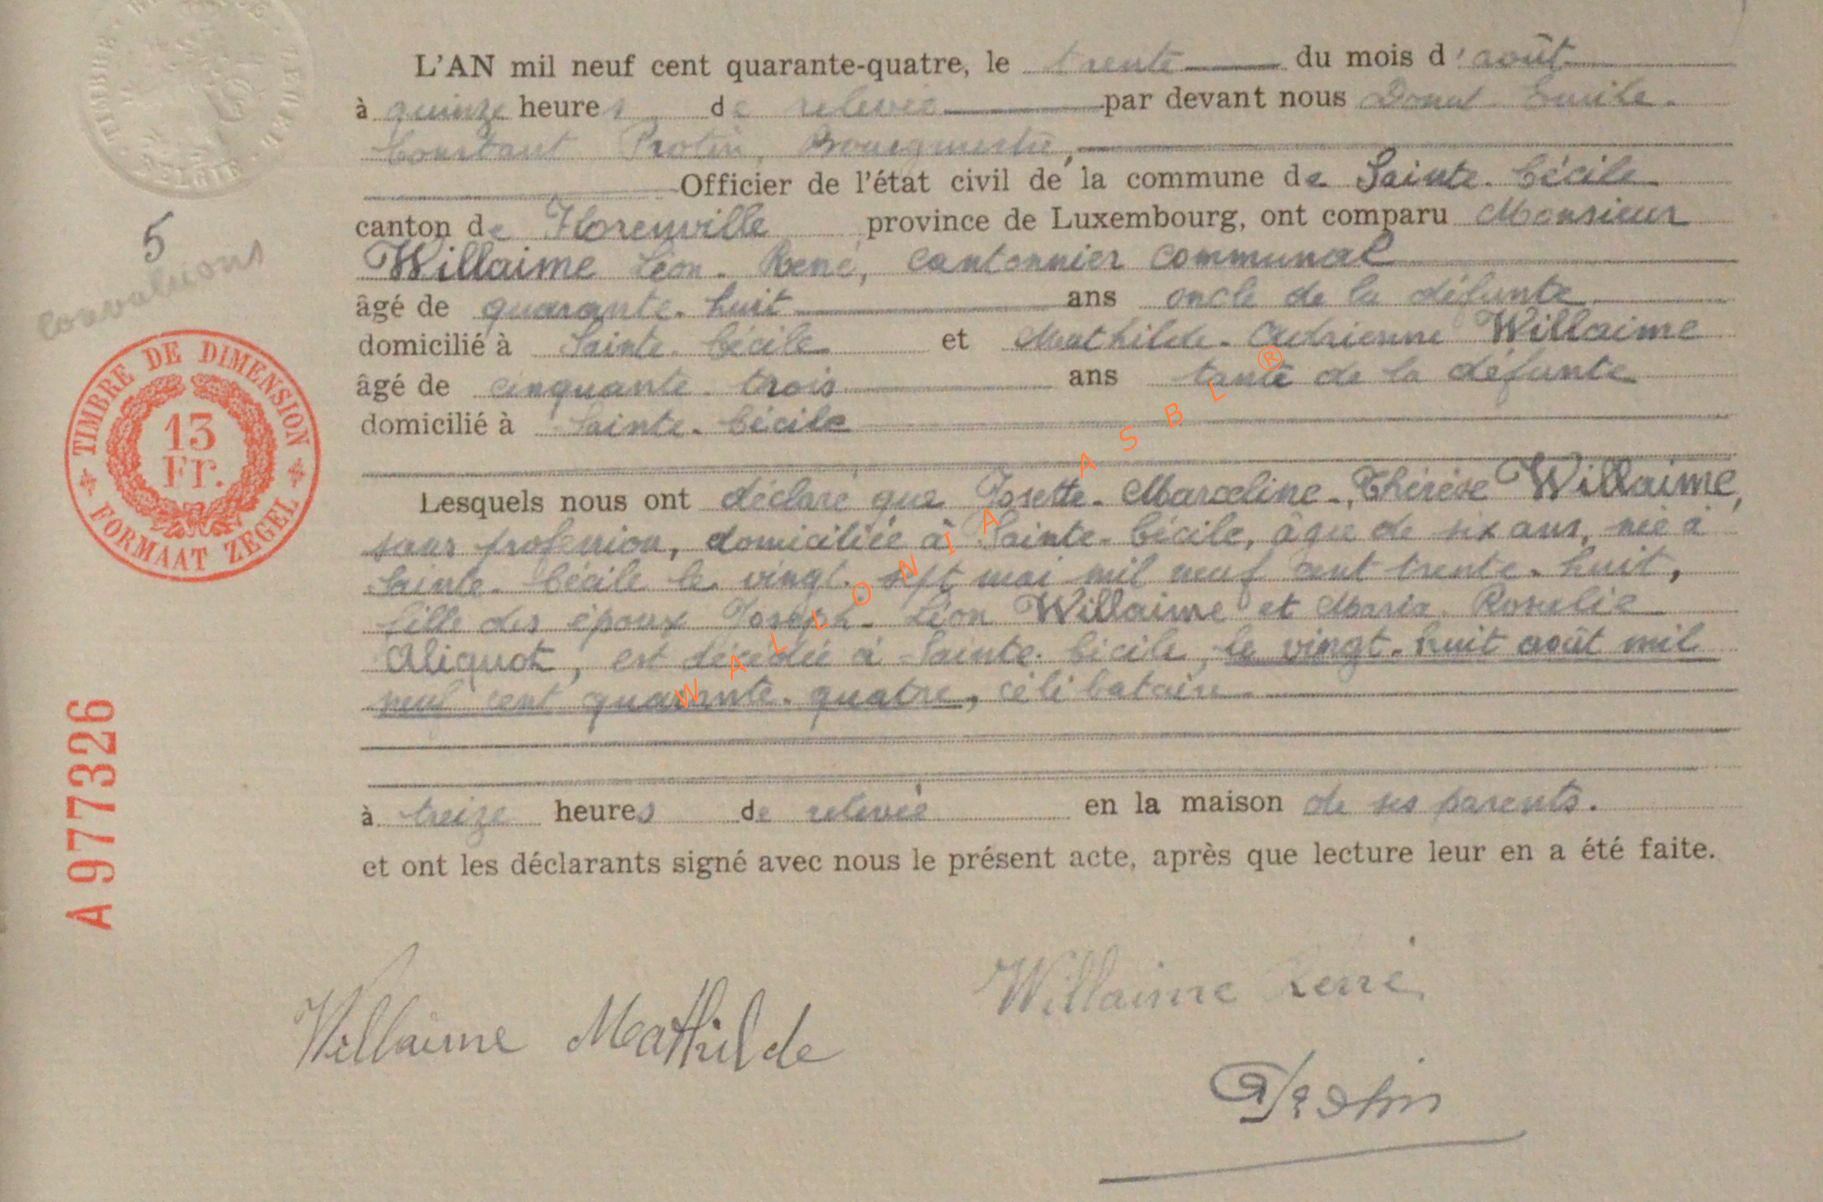 L'AN mil neuf cent quarante-quatre, le trente du mois d'août
à quinze heures de relevée par devant nous Donat Emile.
Constant Protin, Bourgmestre,
Officier de l'état civil de la commune de Sainte-Cécile
canton de Florenville province de Luxembourg, ont comparu Monsieur
Willaime Léon-René, cantonnier communal
âgé de quarante-huit ans oncle de la défunte
domicilié à Sainte-Cécile et Mathilde-Adrienne Willaime
âgé de cinquante-trois ans tante de la défunte
domicilié à Sainte-Cécile
Lesquels nous ont déclaré que Josette-Marceline-Thérèse Willaime,
sans profession, domiciliée à Sainte-Cécile, âgée de six ans, née à
Sainte-Cécile le vingt-sept mai mil neuf cent trente-huit,
fille des époux Joseph-Léon Willaime et Maria-Roselie
Aliquot, est décédée à Sainte-Cécile, le vingt-huit août mil
neuf cent quarante-quatre, célibataire.
à treize heures de relevée en la maison de ses parents.
et ont les déclarants signé avec nous le présent acte, après que lecture leur en a été faite.
Willaime Mathilde
Willaime René
Protin
5
convulsions
TIMBRE DE DIMENSION
13
Fr.
FORMAAT ZEGEL
A977326
BELGIE
WALLONIA ASBL ®